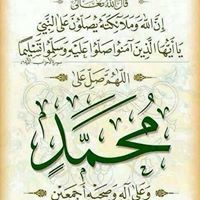 قال الله تعالى
إِنَّ اللَّهَ وَمَلَائِكَتَهُ يُصَلُّونَ عَلَى النَّبِيِّ
يَا أَيُّهَا الَّذِينَ آمَنُوا صَلُّوا عَلَيْهِ وَسَلِّمُوا تَسْلِيمًا
اللَّهُمَّ صَلِّ عَلَى
مُحَمَّدٍ
وَعَلَى آلِهِ وَصَحْبِهِ أَجْمَعِينَ